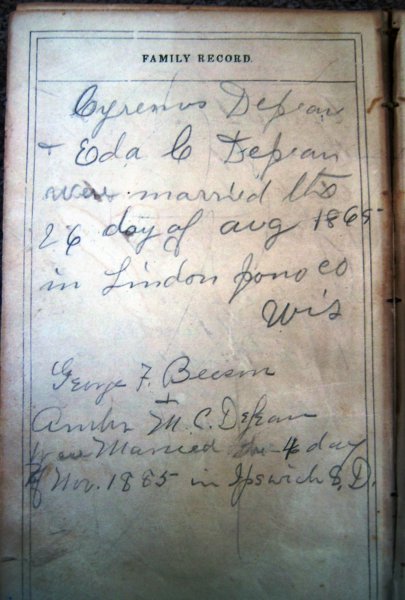 FAMILY RECORD.
Cyrenus DeJean
+ Eda C DeJean
was married the
26 day of aug 1865
in Lindon Jono co
Wis
George F. Beeson
+
M. C. DeJean
Were Married the 4 day
of Nov. 1885 in Ipswich S.D.